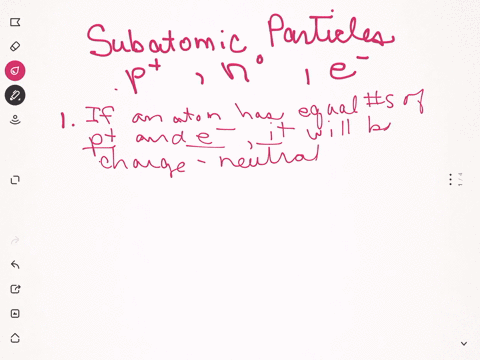 Subatomic Particles
p⁺ , n⁰ , e⁻
1. If an atom has equal #s of
p⁺ and e⁻, it will be
charge-neutral
1/4